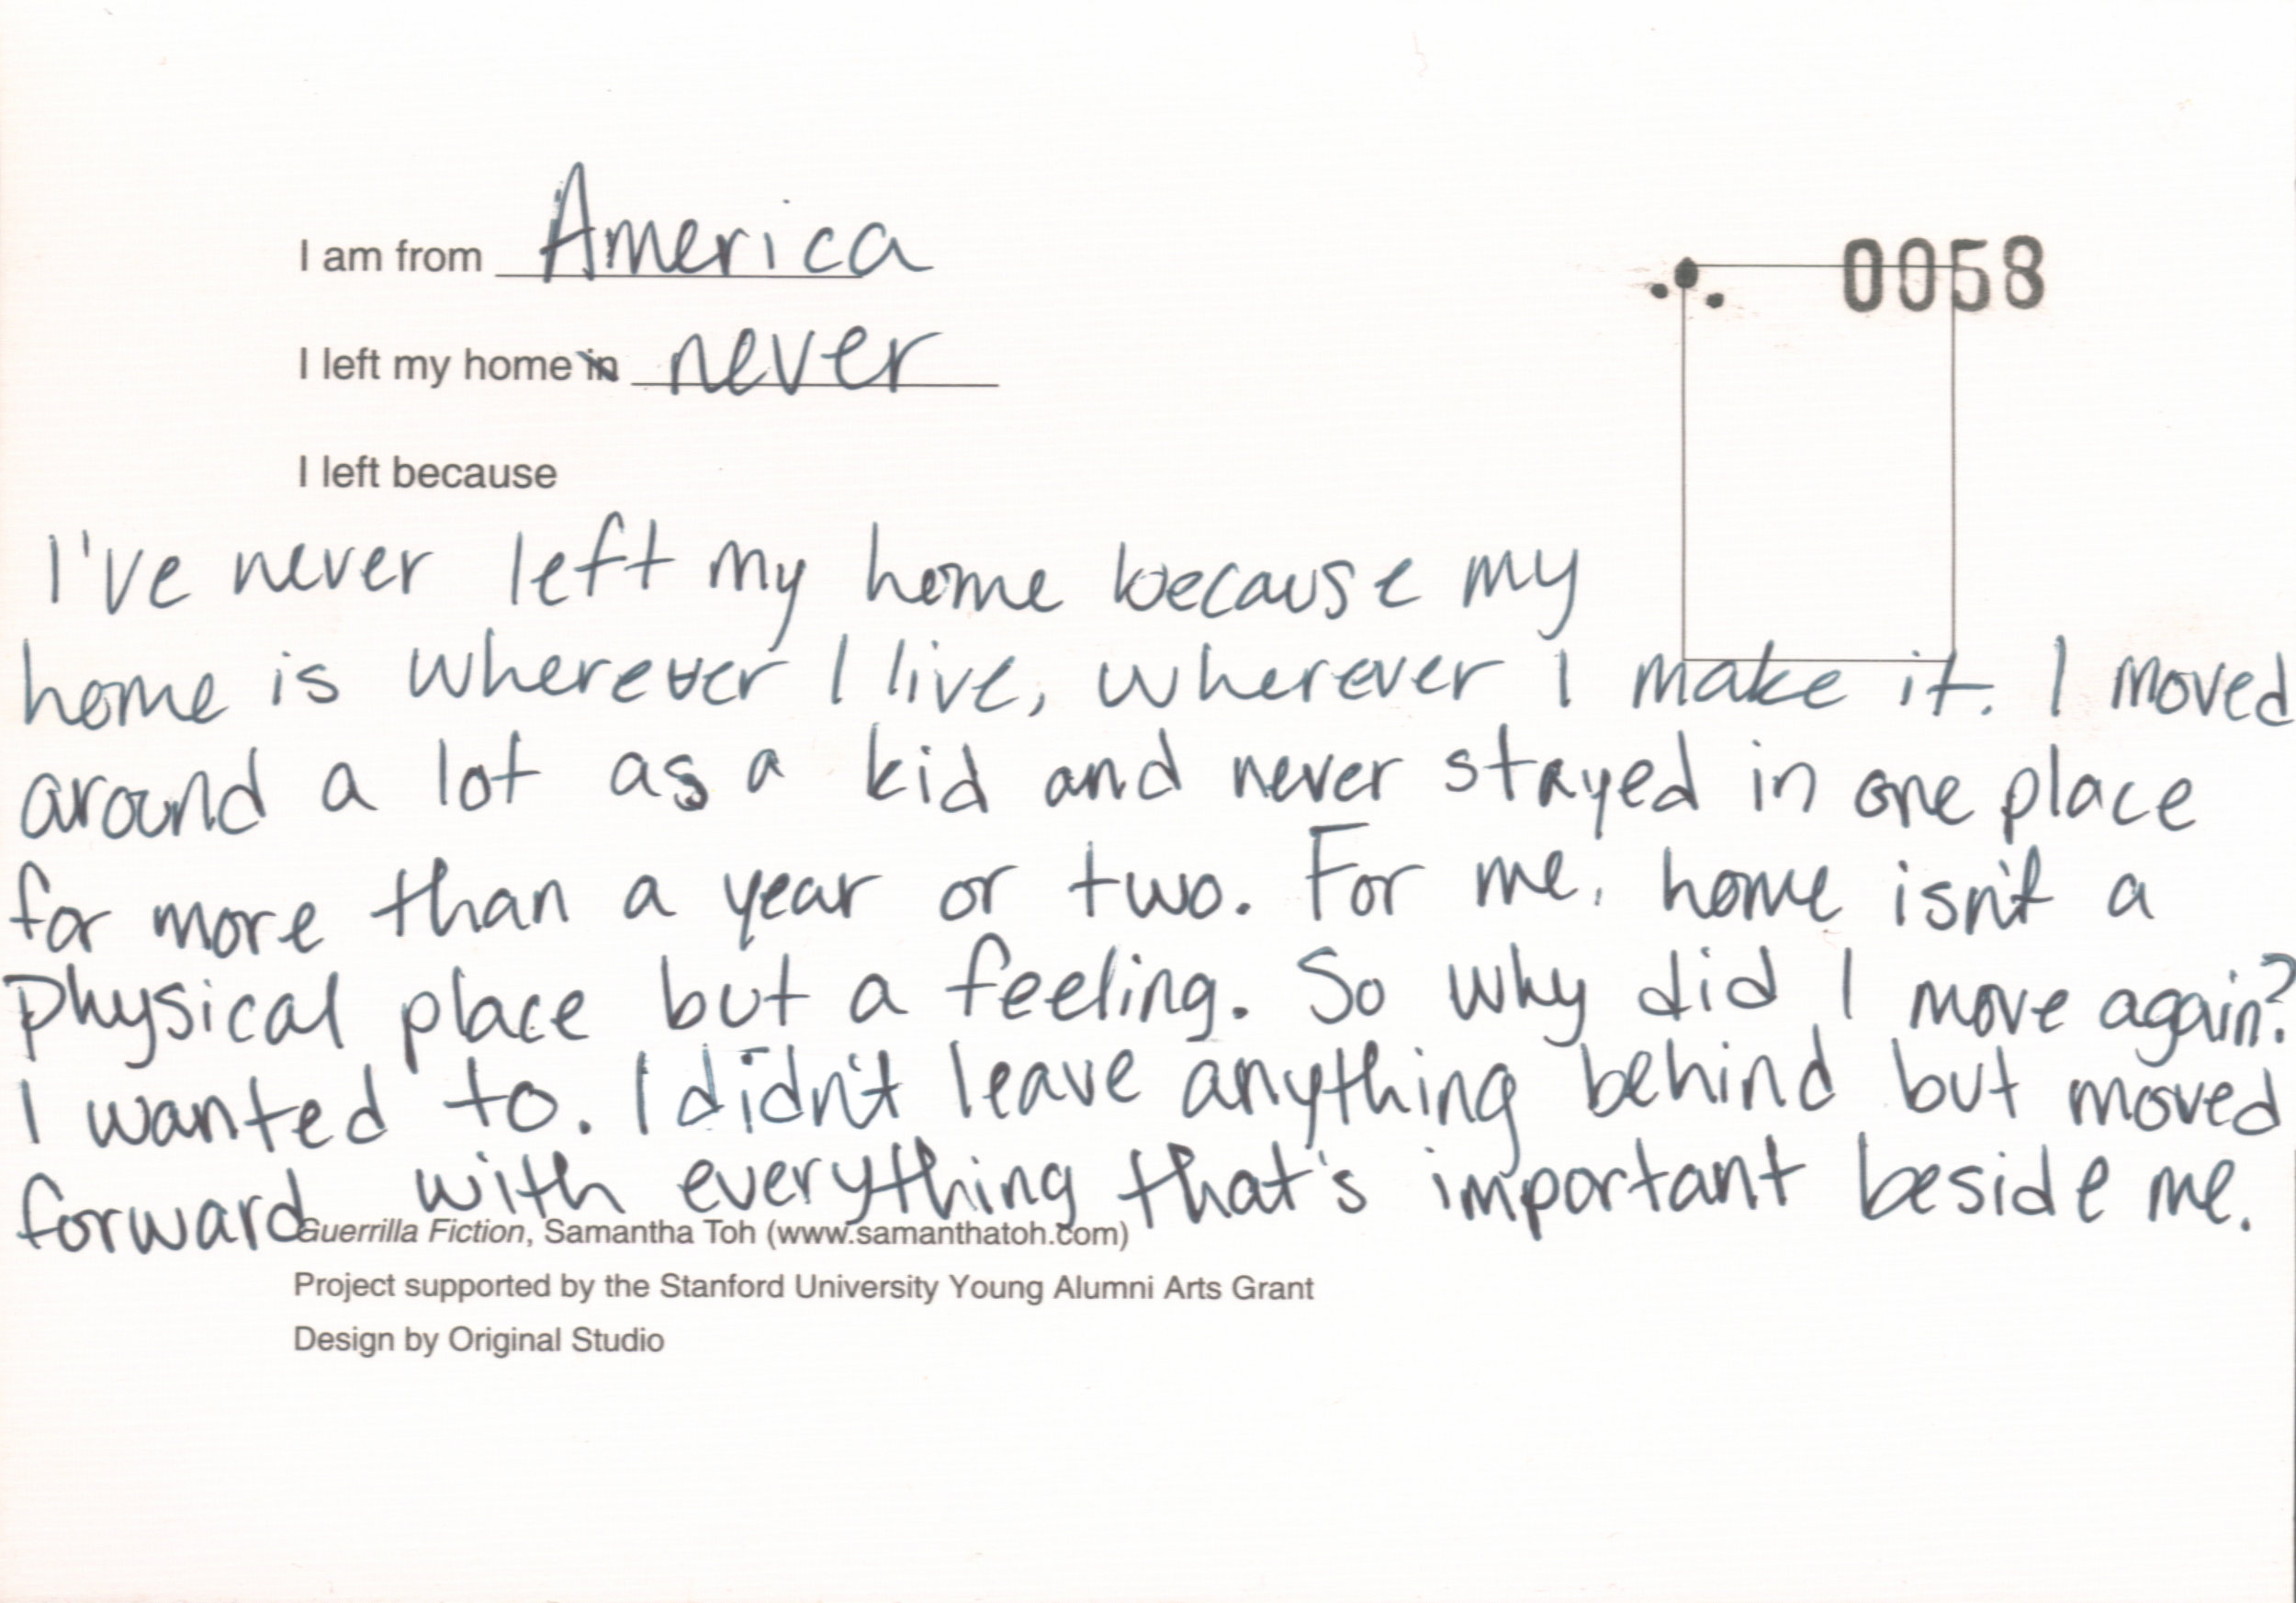 I am from America
0058
I left my home in never
I left because
I've never left my home because my
home is wherever I live, wherever I make it. I moved
around a lot as a kid and never stayed in one place
for more than a year or two. For me, home isn't a
physical place but a feeling. So why did I move again?
I wanted to. I didn't leave anything behind but moved
forward with everything that's important beside me.
Guerrilla Fiction, Samantha Toh (www.samanthatoh.com)
Project supported by the Stanford University Young Alumni Arts Grant
Design by Original Studio